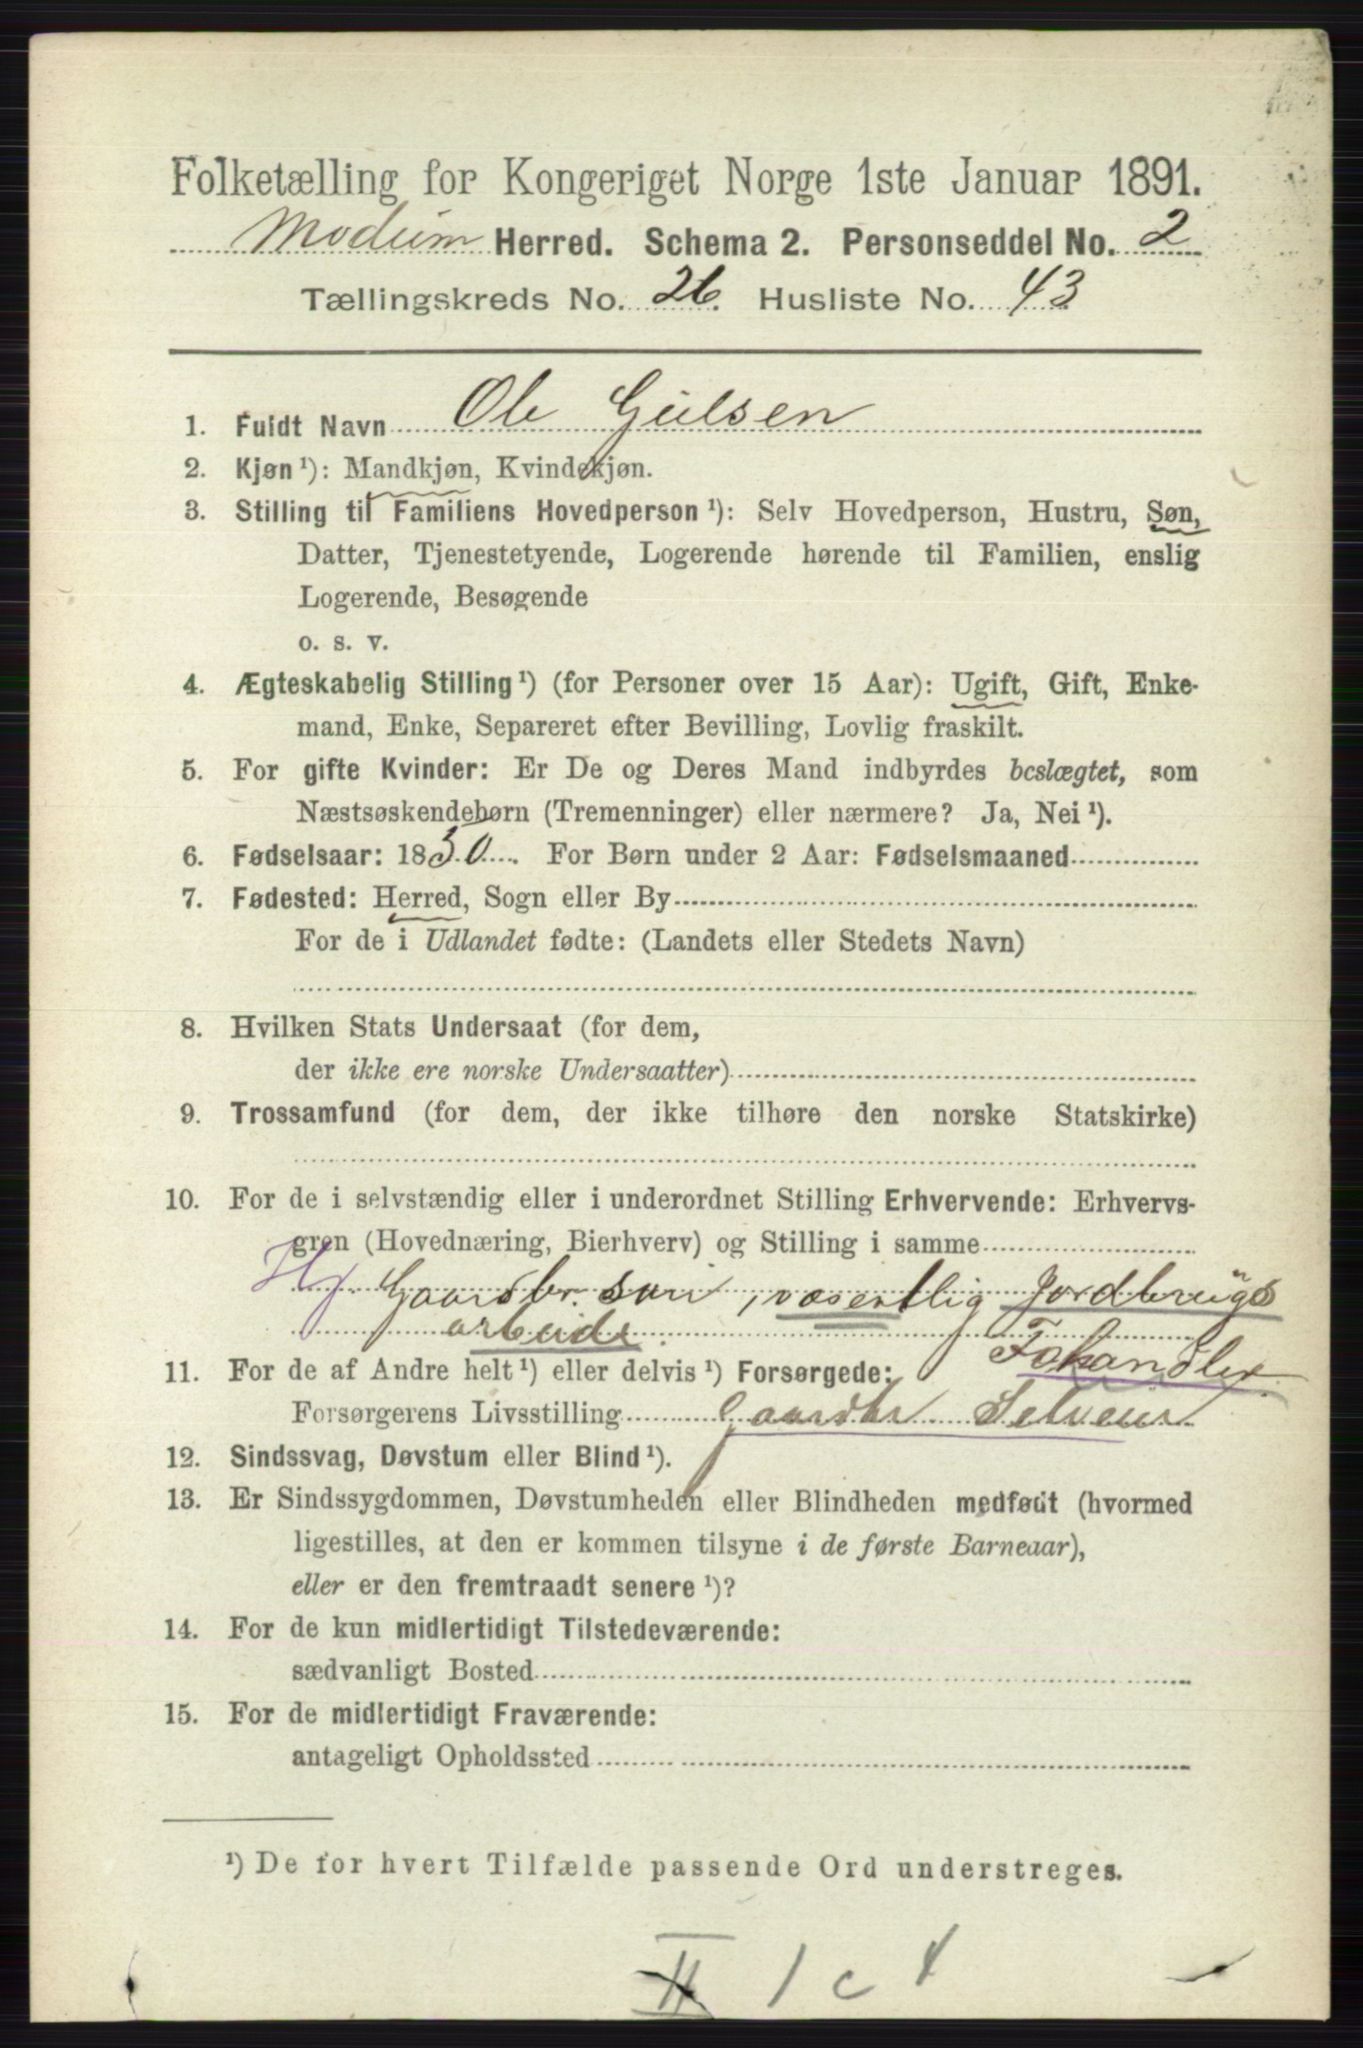 Folketælling for Kongeriget Norge 1ste Januar 1891.
Modum Herred. Schema 2. Personseddel No. 2
Tællingskreds No. 26. Husliste No. 43
1. Fuldt Navn Ole Gulsen
2. Kjøn ¹): Mandkjøn, Kvindekjøn.
3. Stilling til Familiens Hovedperson ¹): Selv Hovedperson, Hustru, Søn,
Datter, Tjenestetyende, Logerende hørende til Familien, enslig
Logerende, Besøgende
o. s. v.
4. Ægteskabelig Stilling ¹) (for Personer over 15 Aar): Ugift, Gift, Enke-
mand, Enke, Separeret efter Bevilling, Lovlig fraskilt.
5. For gifte Kvinder: Er De og Deres Mand indbyrdes beslægtet, som
Næstsøskendebørn (Tremenninger) eller nærmere? Ja, Nei ¹).
6. Fødselsaar: 1850. For Børn under 2 Aar: Fødselsmaaned
7. Fødested: Herred, Sogn eller By
For de i Udlandet fødte: (Landets eller Stedets Navn)
8. Hvilken Stats Undersaat (for dem,
der ikke ere norske Undersaatter)
9. Trossamfund (for dem, der ikke tilhøre den norske Statskirke)
10. For de i selvstændig eller i underordnet Stilling Erhvervende: Erhvervs-
gren (Hovednæring, Bierhverv) og Stilling i samme
Gaardbr. søn, væsentlig Jordbrugs
arbeide.
11. For de af Andre helt ¹) eller delvis ¹) Forsørgede:
Forsørgerens Livsstilling Gaardbr Selveier
12. Sindssvag, Døvstum eller Blind ¹).
13. Er Sindssygdommen, Døvstumheden eller Blindheden medfødt (hvormed
ligestilles, at den er kommen tilsyne i de første Barneaar),
eller er den fremtraadt senere ¹)?
14. For de kun midlertidigt Tilstedeværende:
sædvanligt Bosted
15. For de midlertidigt Fraværende:
antageligt Opholdssted
¹) De for hvert Tilfælde passende Ord understreges.
II 1 c